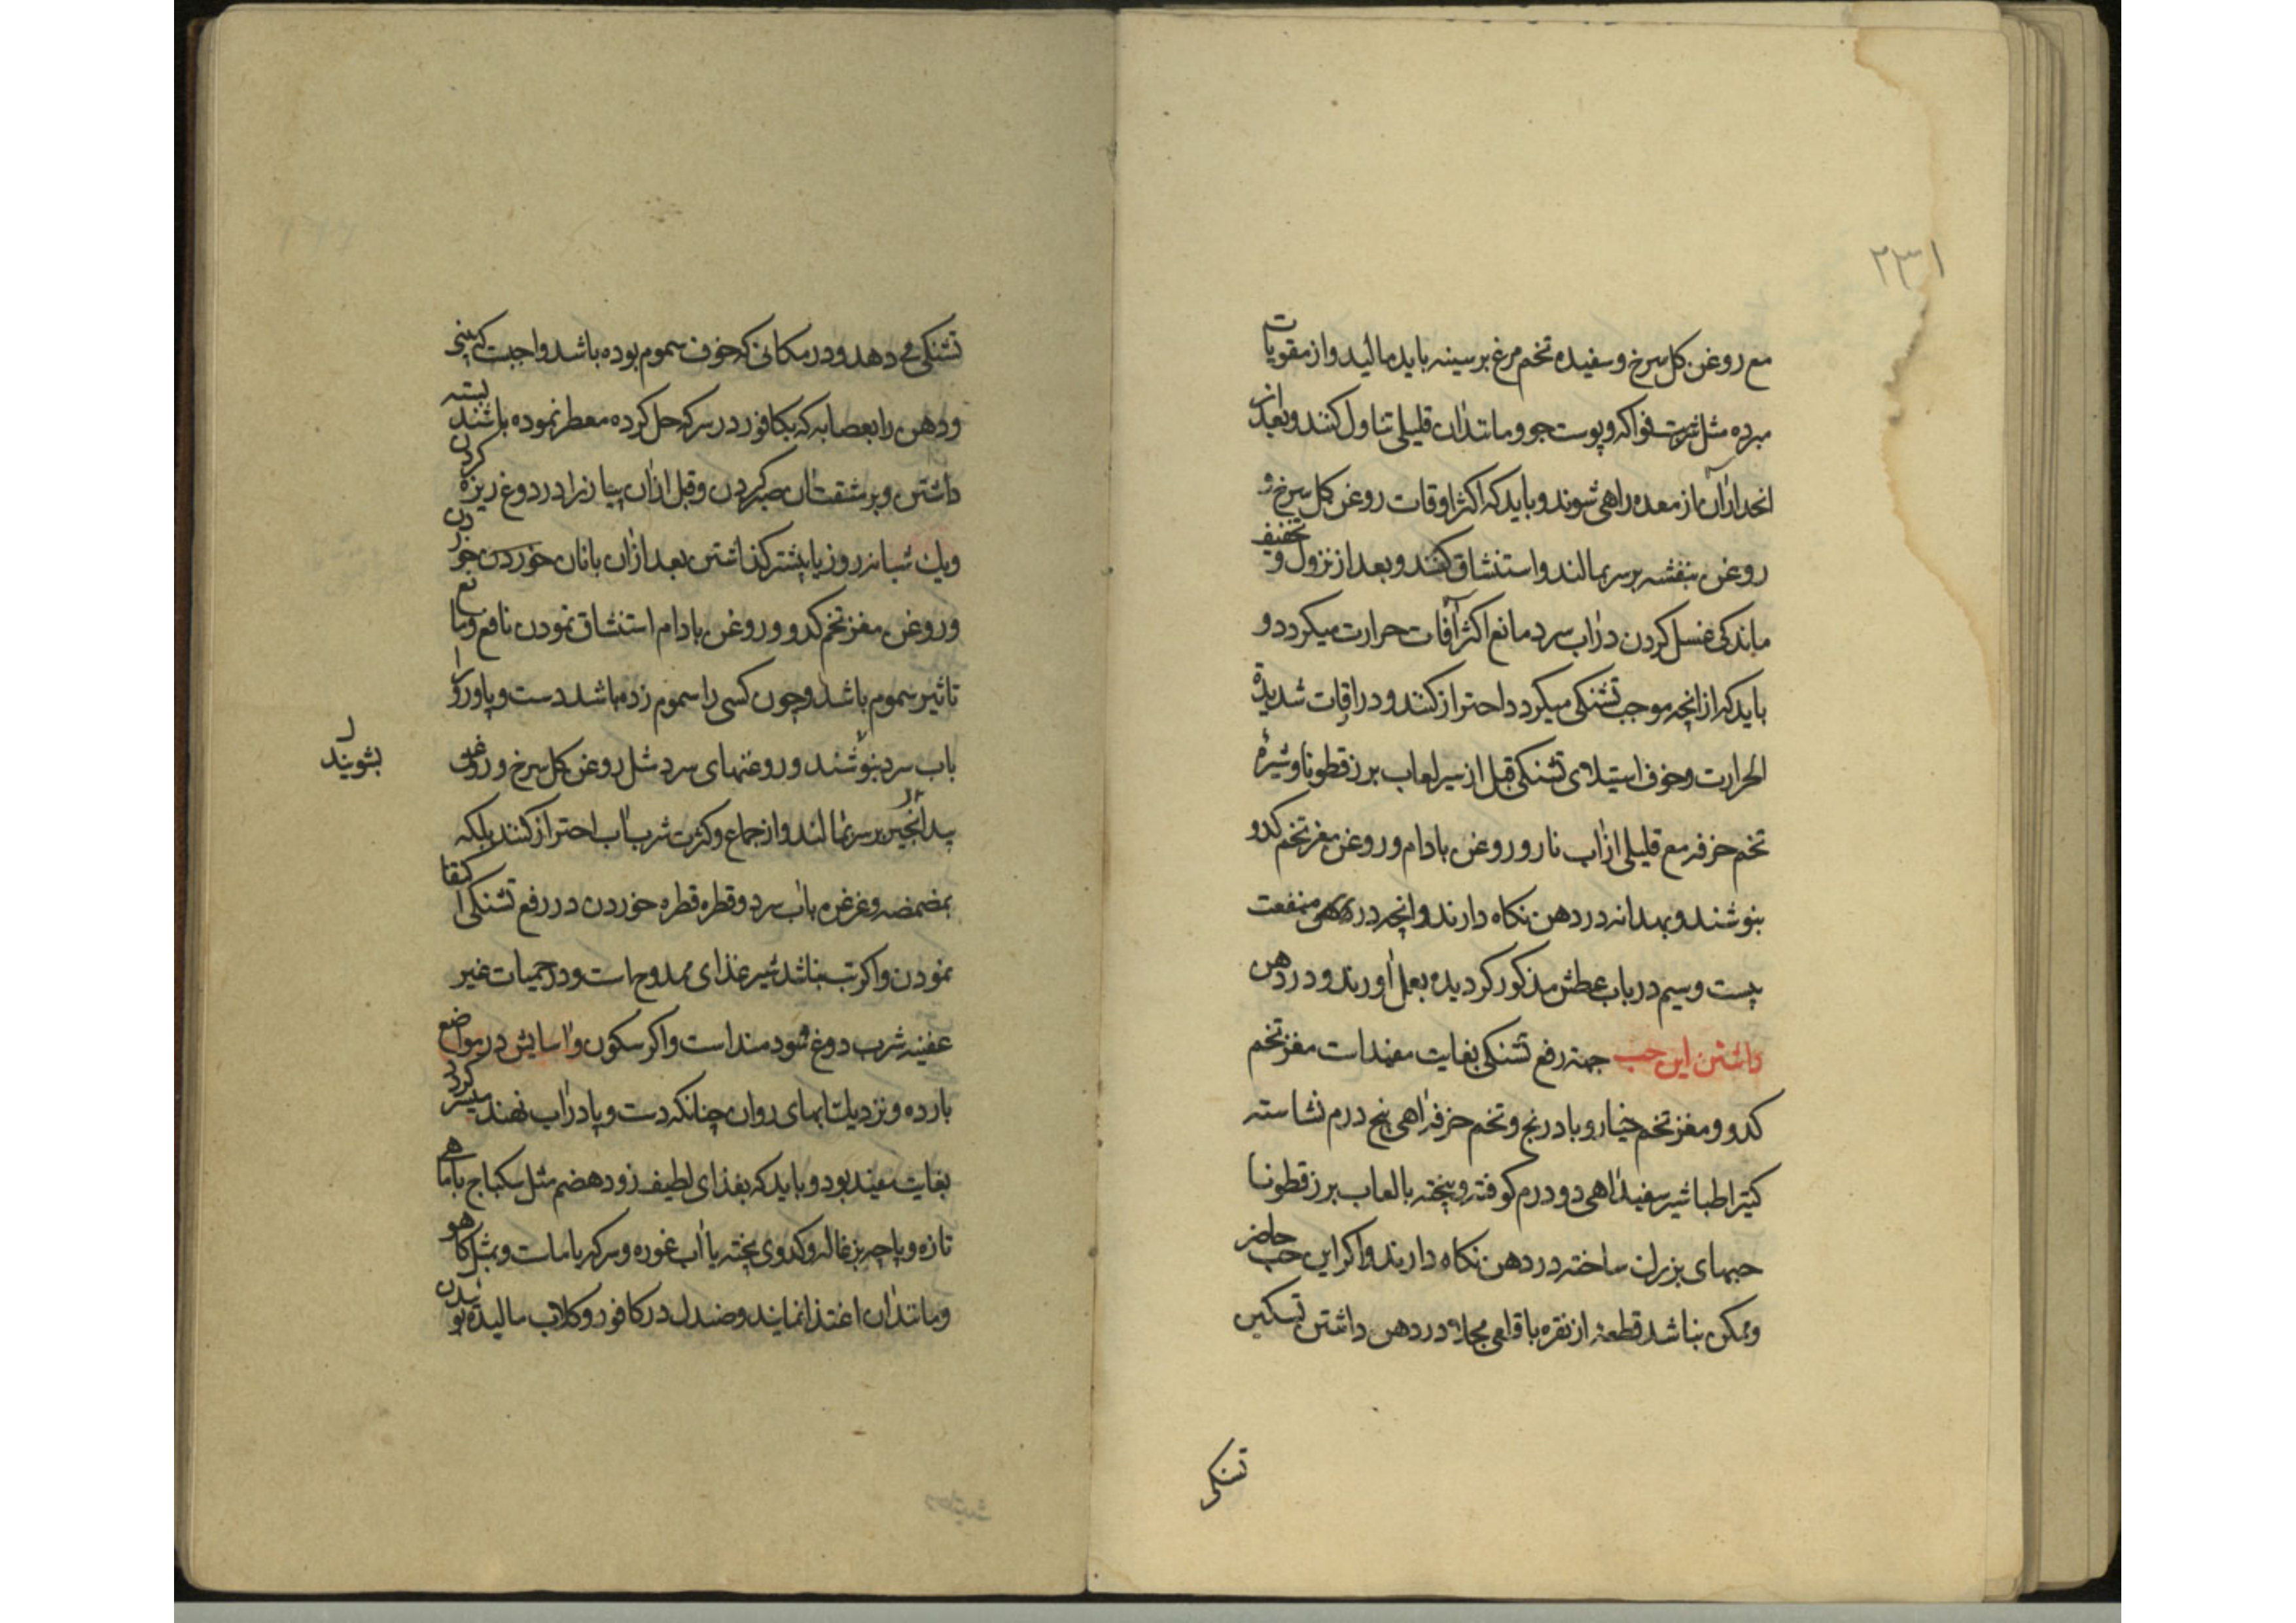 ۲۳۱
مع روغن کل سرخ و سفیده تخم مرغ بر سینه باید مالید و از مقویات
مبرده مثل شربت فواکه و پوست جو و مانند آن قلیلی تناول کنند و بعد از
انحدار آن از معده راهی شوند و باید که اکثر اوقات روغن کل سرخ و
روغن بنفشه بر سر بمالند و استنشاق کنند و بعد از نزول و تخفیف
ماندکی غسل کردن در آب سرد مانع اکثر آفات حرارت میکردد و
باید که از انچه موجب تشنکی میکردد احتراز کنند و در اوقات شدیدة
الحرارت و خوف استیلای تشنکی قبل از سیر لعاب بزرقطونا و شیرهٔ
تخم خرفه مع قلیلی از آب نار و روغن بادام و روغن مغز تخم کدو
بنوشند و بهدانه در دهن نکاه دارند و انچه در منفعت
بیست و سیم در باب عطش مذکور کردیده بعمل آورند و در دهن
داشتن این حب جهة رفع تشنکی بغایت مفید است مغز تخم
کدو و مغز تخم خیار و بادرنج و تخم خرفه از هر یک پنج درم نشاسته
کتیرا طباشیر سفید از هر یک دو درم کوفته و پیخته بالعاب بزرقطونا
حبهای بزرک ساخته در دهن نکاه دارند و اکر این حب حاضر
و ممکن نباشد قطعهٔ از نقره یا قلعی مجلا در دهن داشتن تسکین
تشنکی
تشنکی می دهد و در مکانی که خوف سموم بوده باشد واجبست که بینی
و دهن را بعصابه که بکافور در سرکه حل کرده معطر نموده باشند بسته
داشتن و بر مشقت آن صبر کردن و قبل از آن پیاز را در دوغ ریزه کردن
و یک شبانروز یا بیشتر کذاشتن بعد از آن با نان خوردن
و روغن مغز تخم کدو و روغن بادام استنشاق نمودن نافع و مانع
تاثیر سموم باشد و چون کسی را سموم زده باشد دست و پا و رو را
باب سرد بشویند و روغنهای سرد مثل روغن کل سرخ و روغن
بشویند
بید انجیر بر سر بمالند و از جماع و کثرت شرب آب احتراز کنند بلکه
بمضمضه و غرغره باب سرد و قطره قطره خوردن در رفع تشنکی اکتفا
نمودن و اکر تب نباشد شیر غذای ممدوح است و در حمیات غیر
عفنیه شرب دوغ سودمند است و اکر سکون و آسایش در مواضع
بارده و نزدیک آبهای روان چنانکه دست و پا در آب نهند میسر کردد
بغایت مفید بود و باید که بغذای لطیف زود هضم مثل سکباج با ماهی
تازه و پاچه بزغاله و کدوی پخته با آب غوره و سرکه یا ماست و مثل کاهو
و مانند آن اغتذا نمایند و صندل در کافور و کلاب مالیده بوئیدن